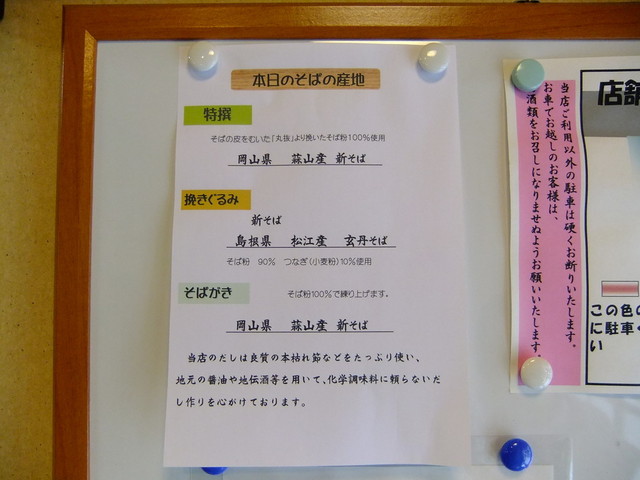 本日のそばの産地
特撰
そばの皮をむいた「丸抜」より挽いたそば粉100%使用
岡山県 蒜山産 新そば
挽きぐるみ
新そば
島根県 松江産 玄丹そば
そば粉 90% つなぎ(小麦粉)10%使用
そばがき
そば粉100%で練り上げます。
岡山県 蒜山産 新そば
当店のだしは良質の本枯れ節などをたっぷり使い、
地元の醤油や地伝酒等を用いて、化学調味料に頼らないだ
し作りを心がけております。
当店ご利用以外の駐車は硬くお断りいたします。
お車でお越しのお客様は、
酒類をお召しになりませぬようお願いいたします。
店舗
この色の
に駐車
い